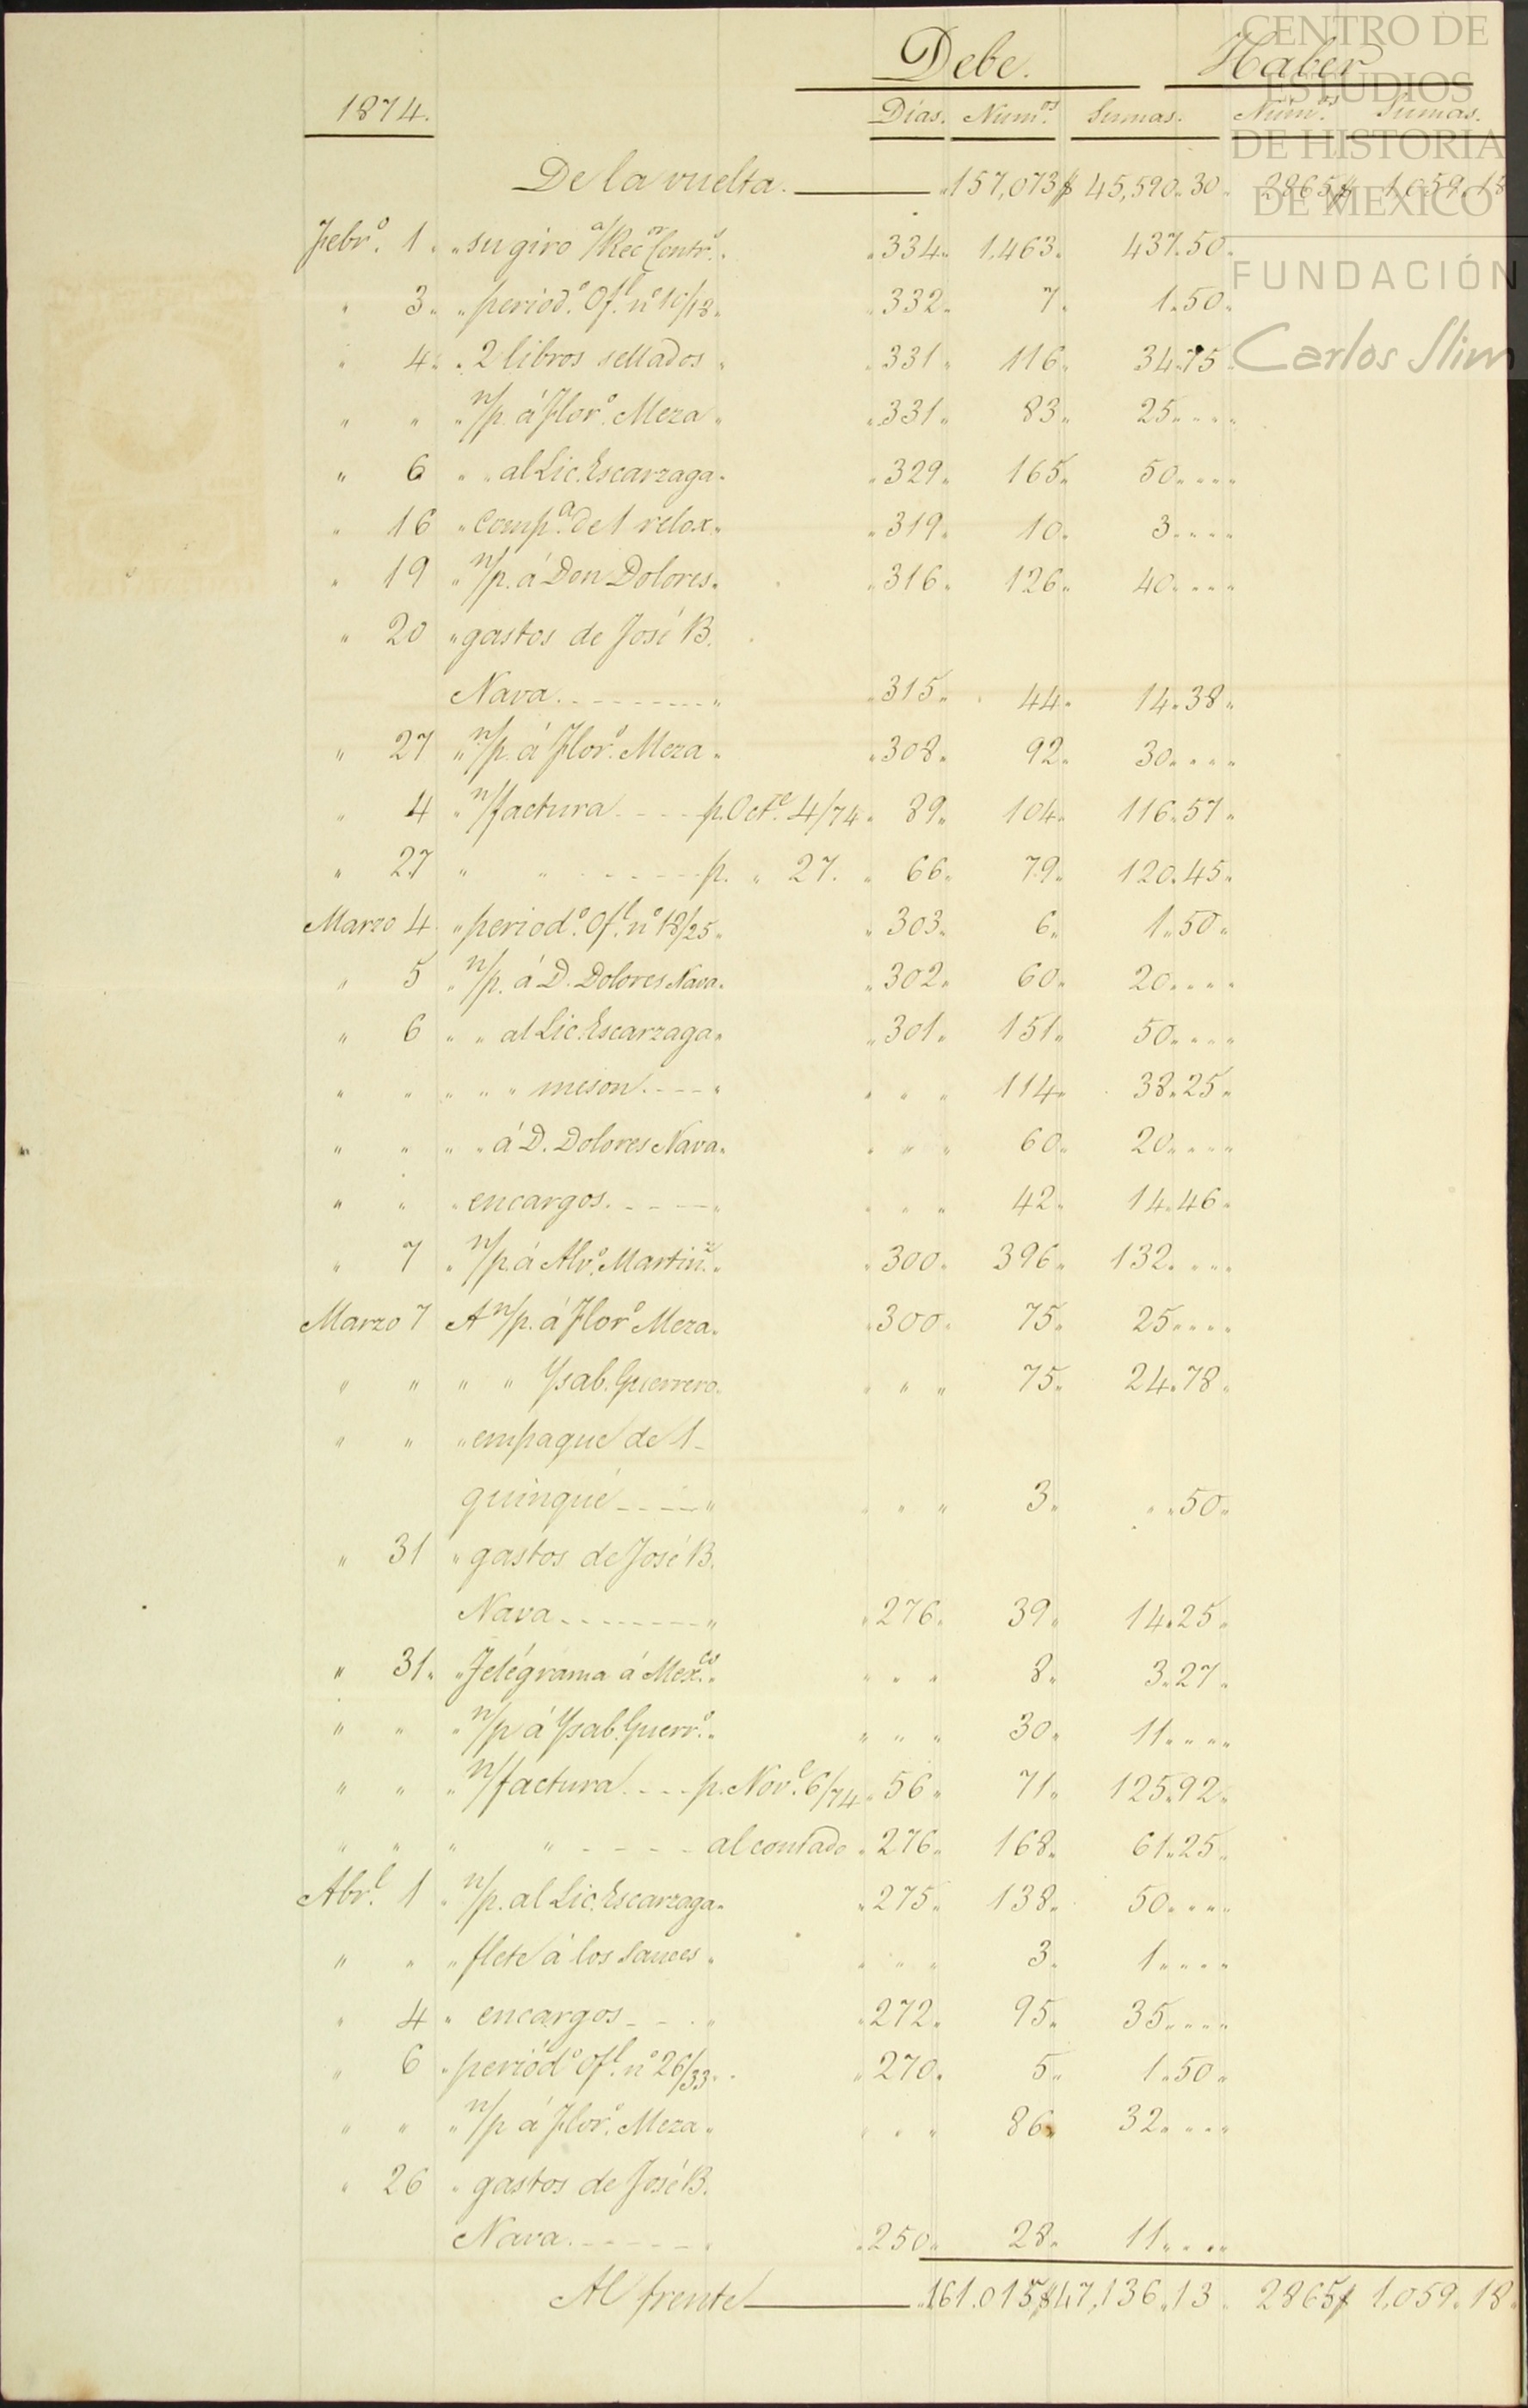 CENTRO DE
ESTUDIOS
DE HISTORIA
DE MEXICO
FUNDACIÓN
Carlos Slim
Debe. Haber
1874. Dias. Num.os Sumas. Núm.os Sumas.
De la vuelta. 157,073 $ 45,590.30 2865 $ 1,059.18
Febr.o 1 " su giro a/ Rec.or Contr.s 334 1,463 437.50
" 3 " period.o Of.l n.o 10/18 332 7 1.50
" 4 " 2 libros sellados 331 116 34.75
" " " n/p. á Flor.o Meza 331 83 25 " "
" 6 " " al Lic. Escarzaga 329 165 50 " "
" 16 " comp.a de 1 relox 319 10 3 " "
" 19 " n/p. á Don Dolores 316 126 40 " "
" 20 " gastos de José B.
Nava 315 44 14.38
" 27 " n/p. á Flor.o Meza 308 92 30 " "
" 4 " n/factura p. Oct.e 4/74 89 104 116.57
" 27 " " p. " 27. 66 79 120.45
Marzo 4 " period.o Of.l n.o 18/25 303 6 1.50
" 5 " n/p. á D. Dolores Nava 302 60 20 " "
" 6 " " al Lic. Escarzaga 301 151 50 " "
" " " " " meson " " 114 38.25
" " " " á D. Dolores Nava " " 60 20 " "
" " " encargos. " " 42 14.46
" 7 " n/p. á Alv.o Martin.z 300 396 132 " "
Marzo 7 A n/p. á Flor.o Meza 300 75 25 " "
" " " " Ysab. Guerrero " " 75 24.78
" " " empaque de 1
quinqué " " 3 " 50
" 31 " gastos de José B.
Nava 276 39 14.25
" 31 " Telégrama á Mex.co " " 8 3.27
" " " n/p á Ysab. Guerr.o " " 30 11 " "
" " " n/factura p. Nov.e 6/74 56 71 125.92
" " " " al contado 276 168 61.25
Abr.l 1 " n/p. al Lic. Escarzaga 275 138 50 " "
" " " flete á los Sauces " " 3 1 " "
" 4 " encargos 272 95 35 " "
" 6 " periód.o Of.l n.o 26/33 270 5 1.50
" " " n/p á Flor.o Meza " " 86 32 " "
" 26 " gastos de José B.
Nava 250 28 11 " "
Al frente 161.015 $ 47,136.13 2865 $ 1,059.18